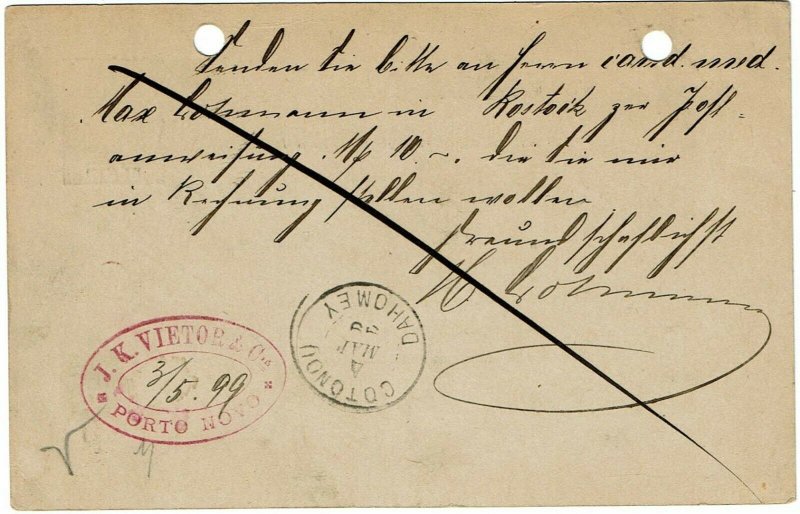 Senden Sie bitte an Herrn cand. med.
Max Lohmann in Rostock per Post-
anweisung M 10.–. die Sie mir
in Rechnung stellen wollen
Freundschaftlichst
Lohmann
J. K. VIETOR & Co.
3/5.99
PORTO NOVO
COTONOU
4
MAI
99
DAHOMEY